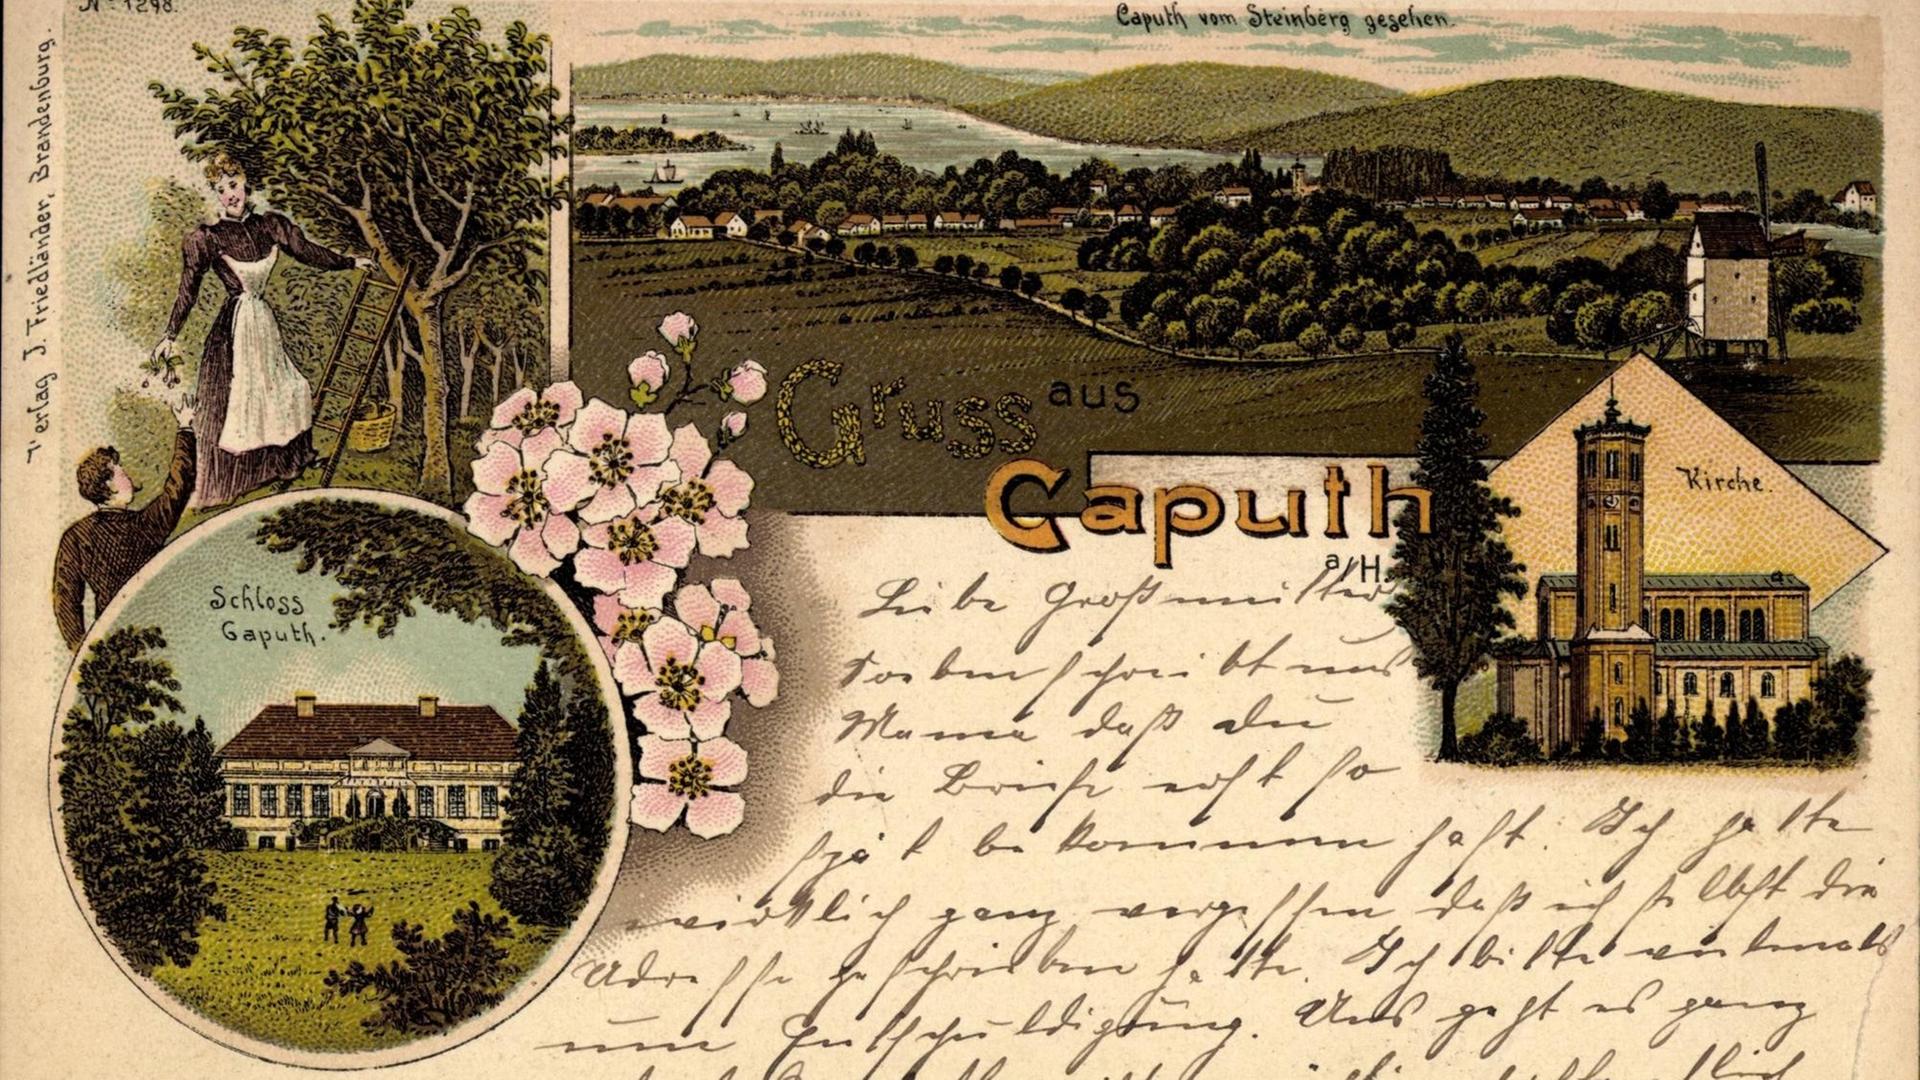 No 1298.
Verlag J. Friedländer, Brandenburg.
Caputh vom Steinberg gesehen.
Gruss aus
Caputh
a/H.
Kirche.
Schloss
Caputh.
Liebe Großmutter
Soeben schreibt uns
Mama daß du
die Briefe erst so
spät bekommen hast. Ich hatte
wirklich ganz vergessen daß ich selbst die
Adresse geschrieben hatte. Ich bitte vielmals
um Entschuldigung. Uns geht es ganz